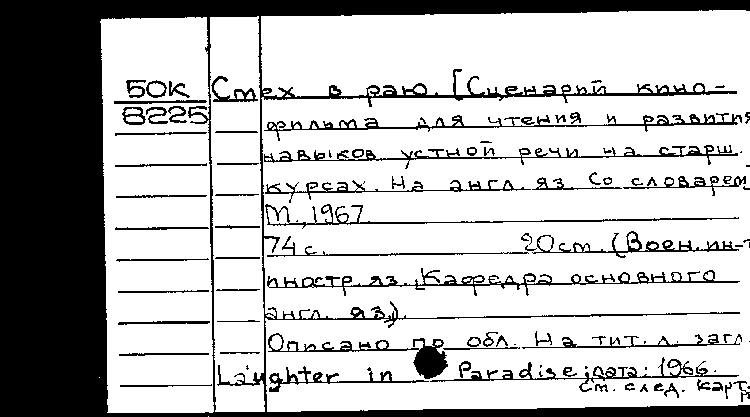 50К Смех в раю. [Сценарий кино-
8225 фильма для чтения и развития
навыков устной речи на старш.
курсах. На англ. яз. Со словарем]
М., 1967.
74 с. 20 см. (Воен. ин-т
иностр. яз. Кафедра основного
англ. яз.).
Описано по обл. На тит. л. загл.
Laughter in Paradise; дата: 1966.
См. след. карт.